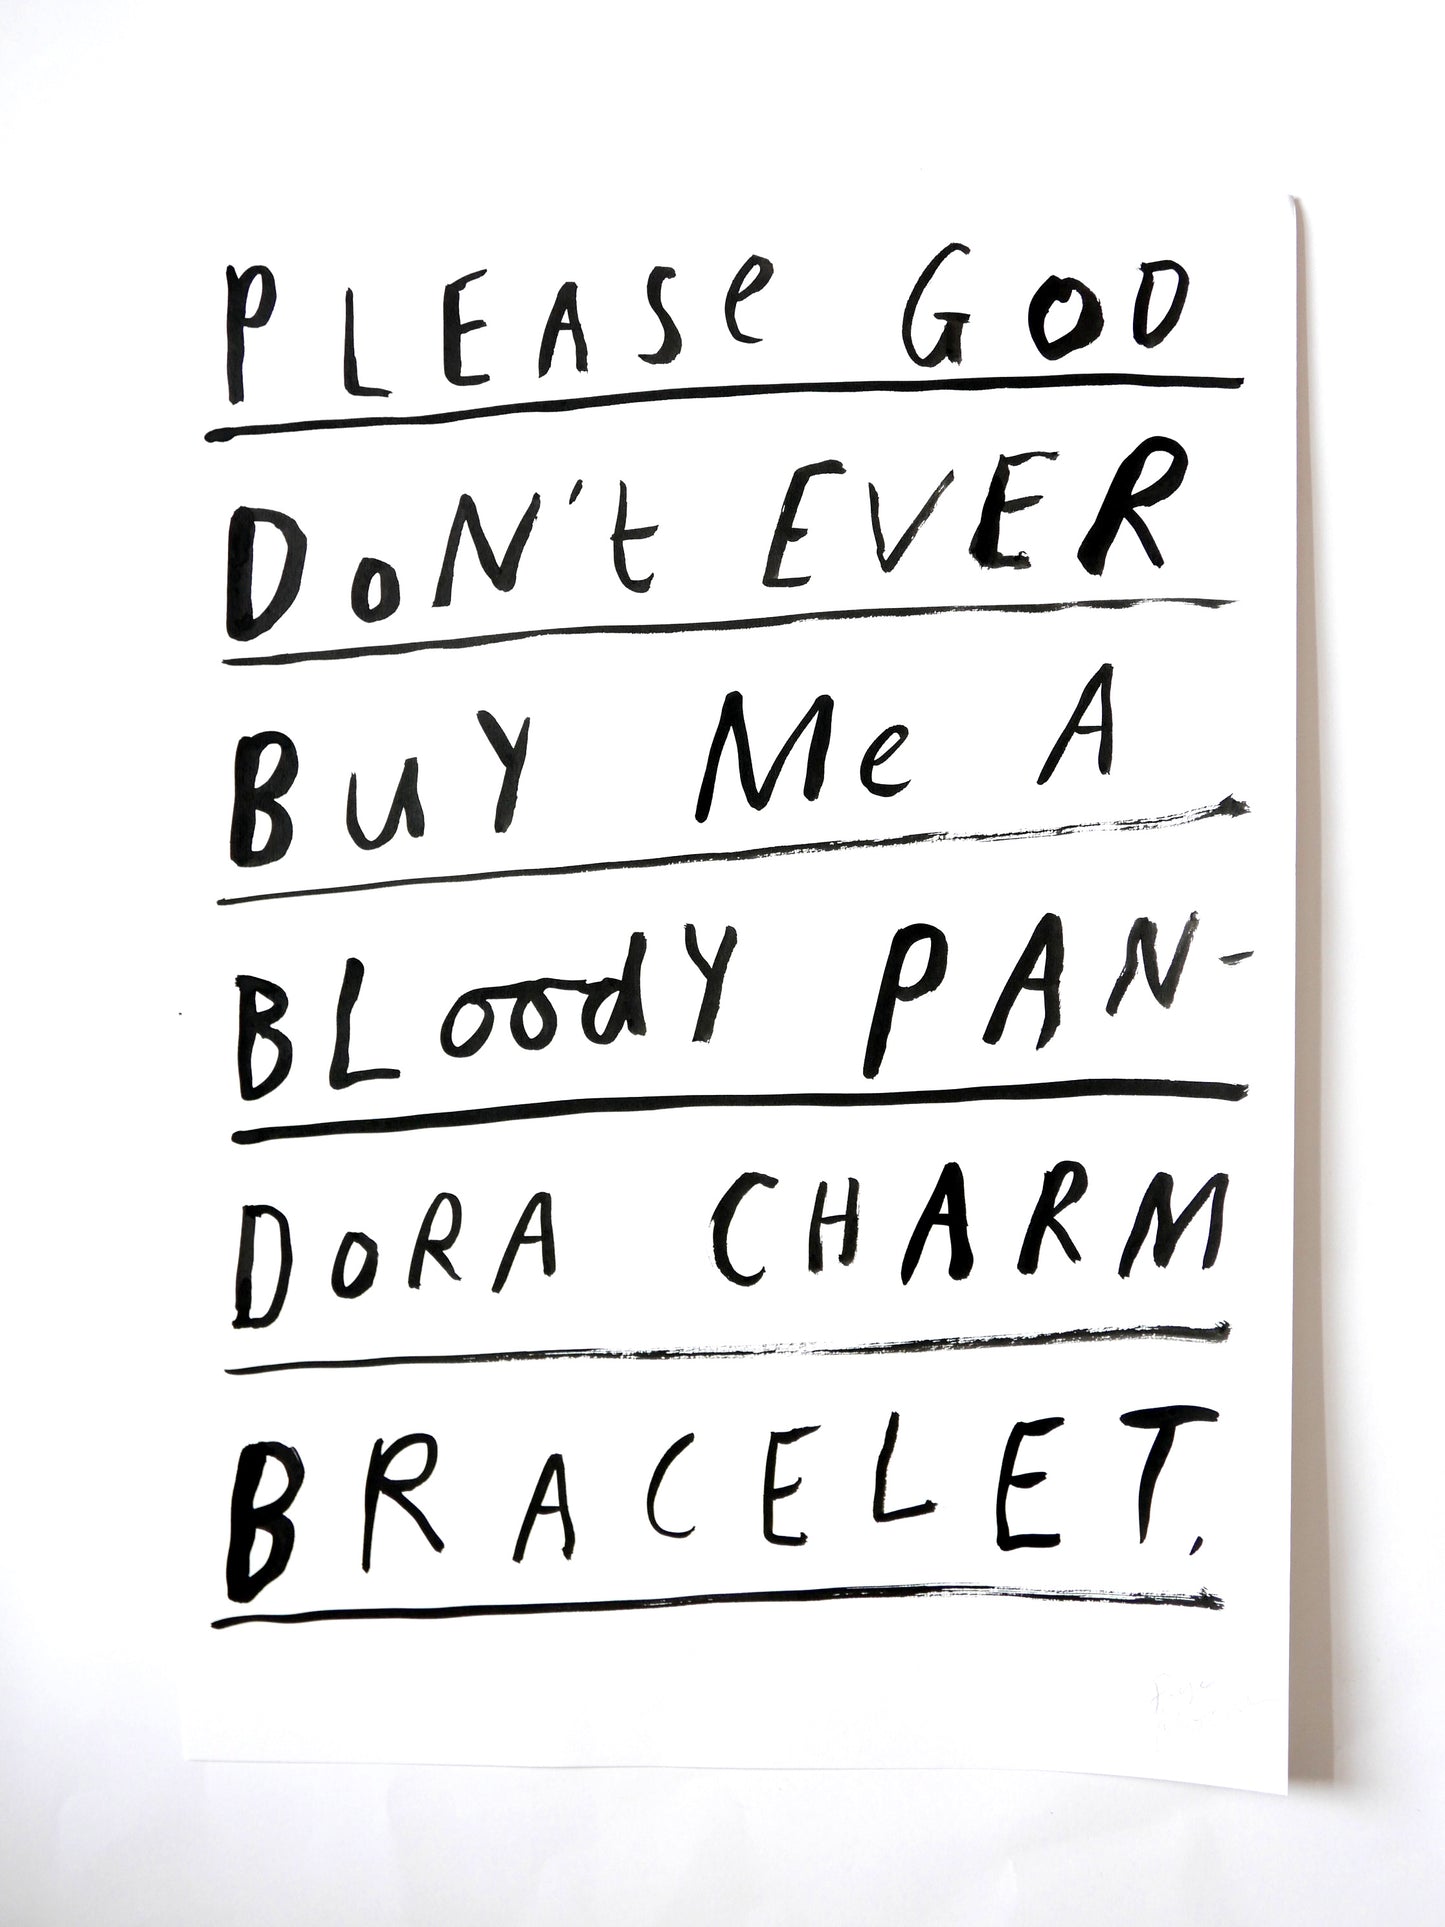 PLEASe GOD
DoN't EVER
BuY Me A
BLoodY PAN-
DoRA CHARM
BRACELET.